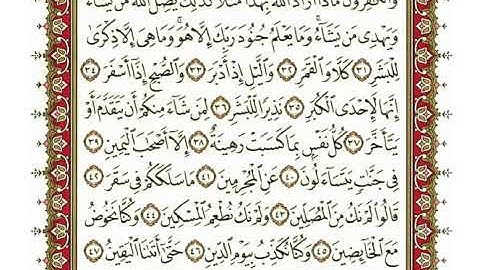 وَٱلْكَٰفِرُونَ مَاذَآ أَرَادَ ٱللَّهُ بِهَٰذَا مَثَلًا كَذَٰلِكَ يُضِلُّ ٱللَّهُ مَن يَشَآءُ
وَيَهْدِى مَن يَشَآءُ وَمَا يَعْلَمُ جُنُودَ رَبِّكَ إِلَّا هُوَ وَمَا هِىَ إِلَّا ذِكْرَىٰ
لِلْبَشَرِ ٣١ كَلَّا وَٱلْقَمَرِ ٣٢ وَٱلَّيْلِ إِذْ أَدْبَرَ ٣٣ وَٱلصُّبْحِ إِذَآ أَسْفَرَ ٣٤
إِنَّهَا لَإِحْدَى ٱلْكُبَرِ ٣٥ نَذِيرًا لِّلْبَشَرِ ٣٦ لِمَن شَآءَ مِنكُمْ أَن يَتَقَدَّمَ أَوْ
يَتَأَخَّرَ ٣٧ كُلُّ نَفْسٍۭ بِمَا كَسَبَتْ رَهِينَةٌ ٣٨ إِلَّآ أَصْحَٰبَ ٱلْيَمِينِ ٣٩
فِى جَنَّٰتٍ يَتَسَآءَلُونَ ٤٠ عَنِ ٱلْمُجْرِمِينَ ٤١ مَا سَلَكَكُمْ فِى سَقَرَ ٤٢
قَالُوا۟ لَمْ نَكُ مِنَ ٱلْمُصَلِّينَ ٤٣ وَلَمْ نَكُ نُطْعِمُ ٱلْمِسْكِينَ ٤٤ وَكُنَّا نَخُوضُ
مَعَ ٱلْخَآئِضِينَ ٤٥ وَكُنَّا نُكَذِّبُ بِيَوْمِ ٱلدِّينِ ٤٦ حَتَّىٰٓ أَتَىٰنَا ٱلْيَقِينُ ٤٧